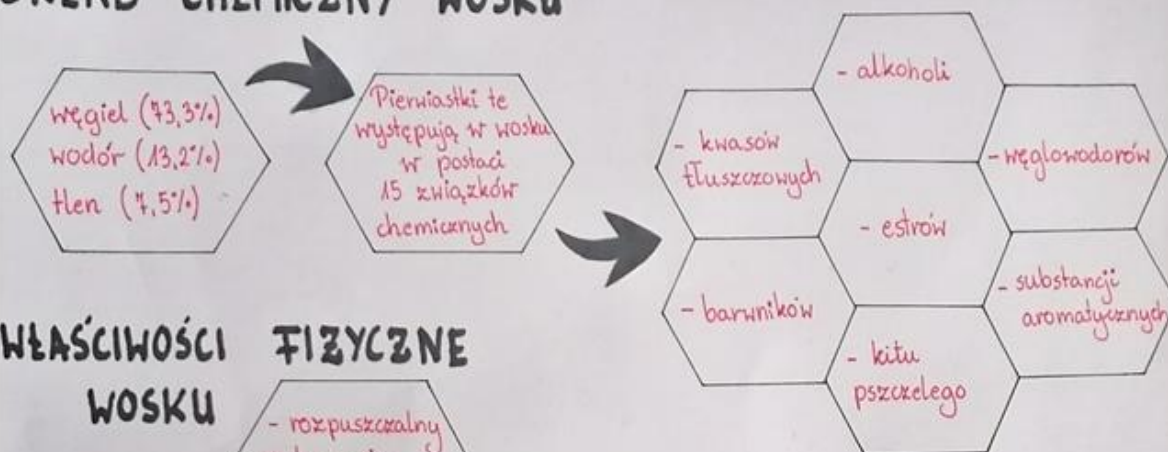 CHEMICZNY WOSKU
węgiel (73,3%)
wodór (13,2%)
tlen (7,5%)
Pierwiastki te
występują w wosku
w postaci
15 związków
chemicznych
- alkoholi
- kwasów
tłuszczowych
- węglowodorów
- estrów
- barwników
- substancji
aromatycznych
- kitu
pszczelego
WŁAŚCIWOŚCI FIZYCZNE
WOSKU
- rozpuszczalny